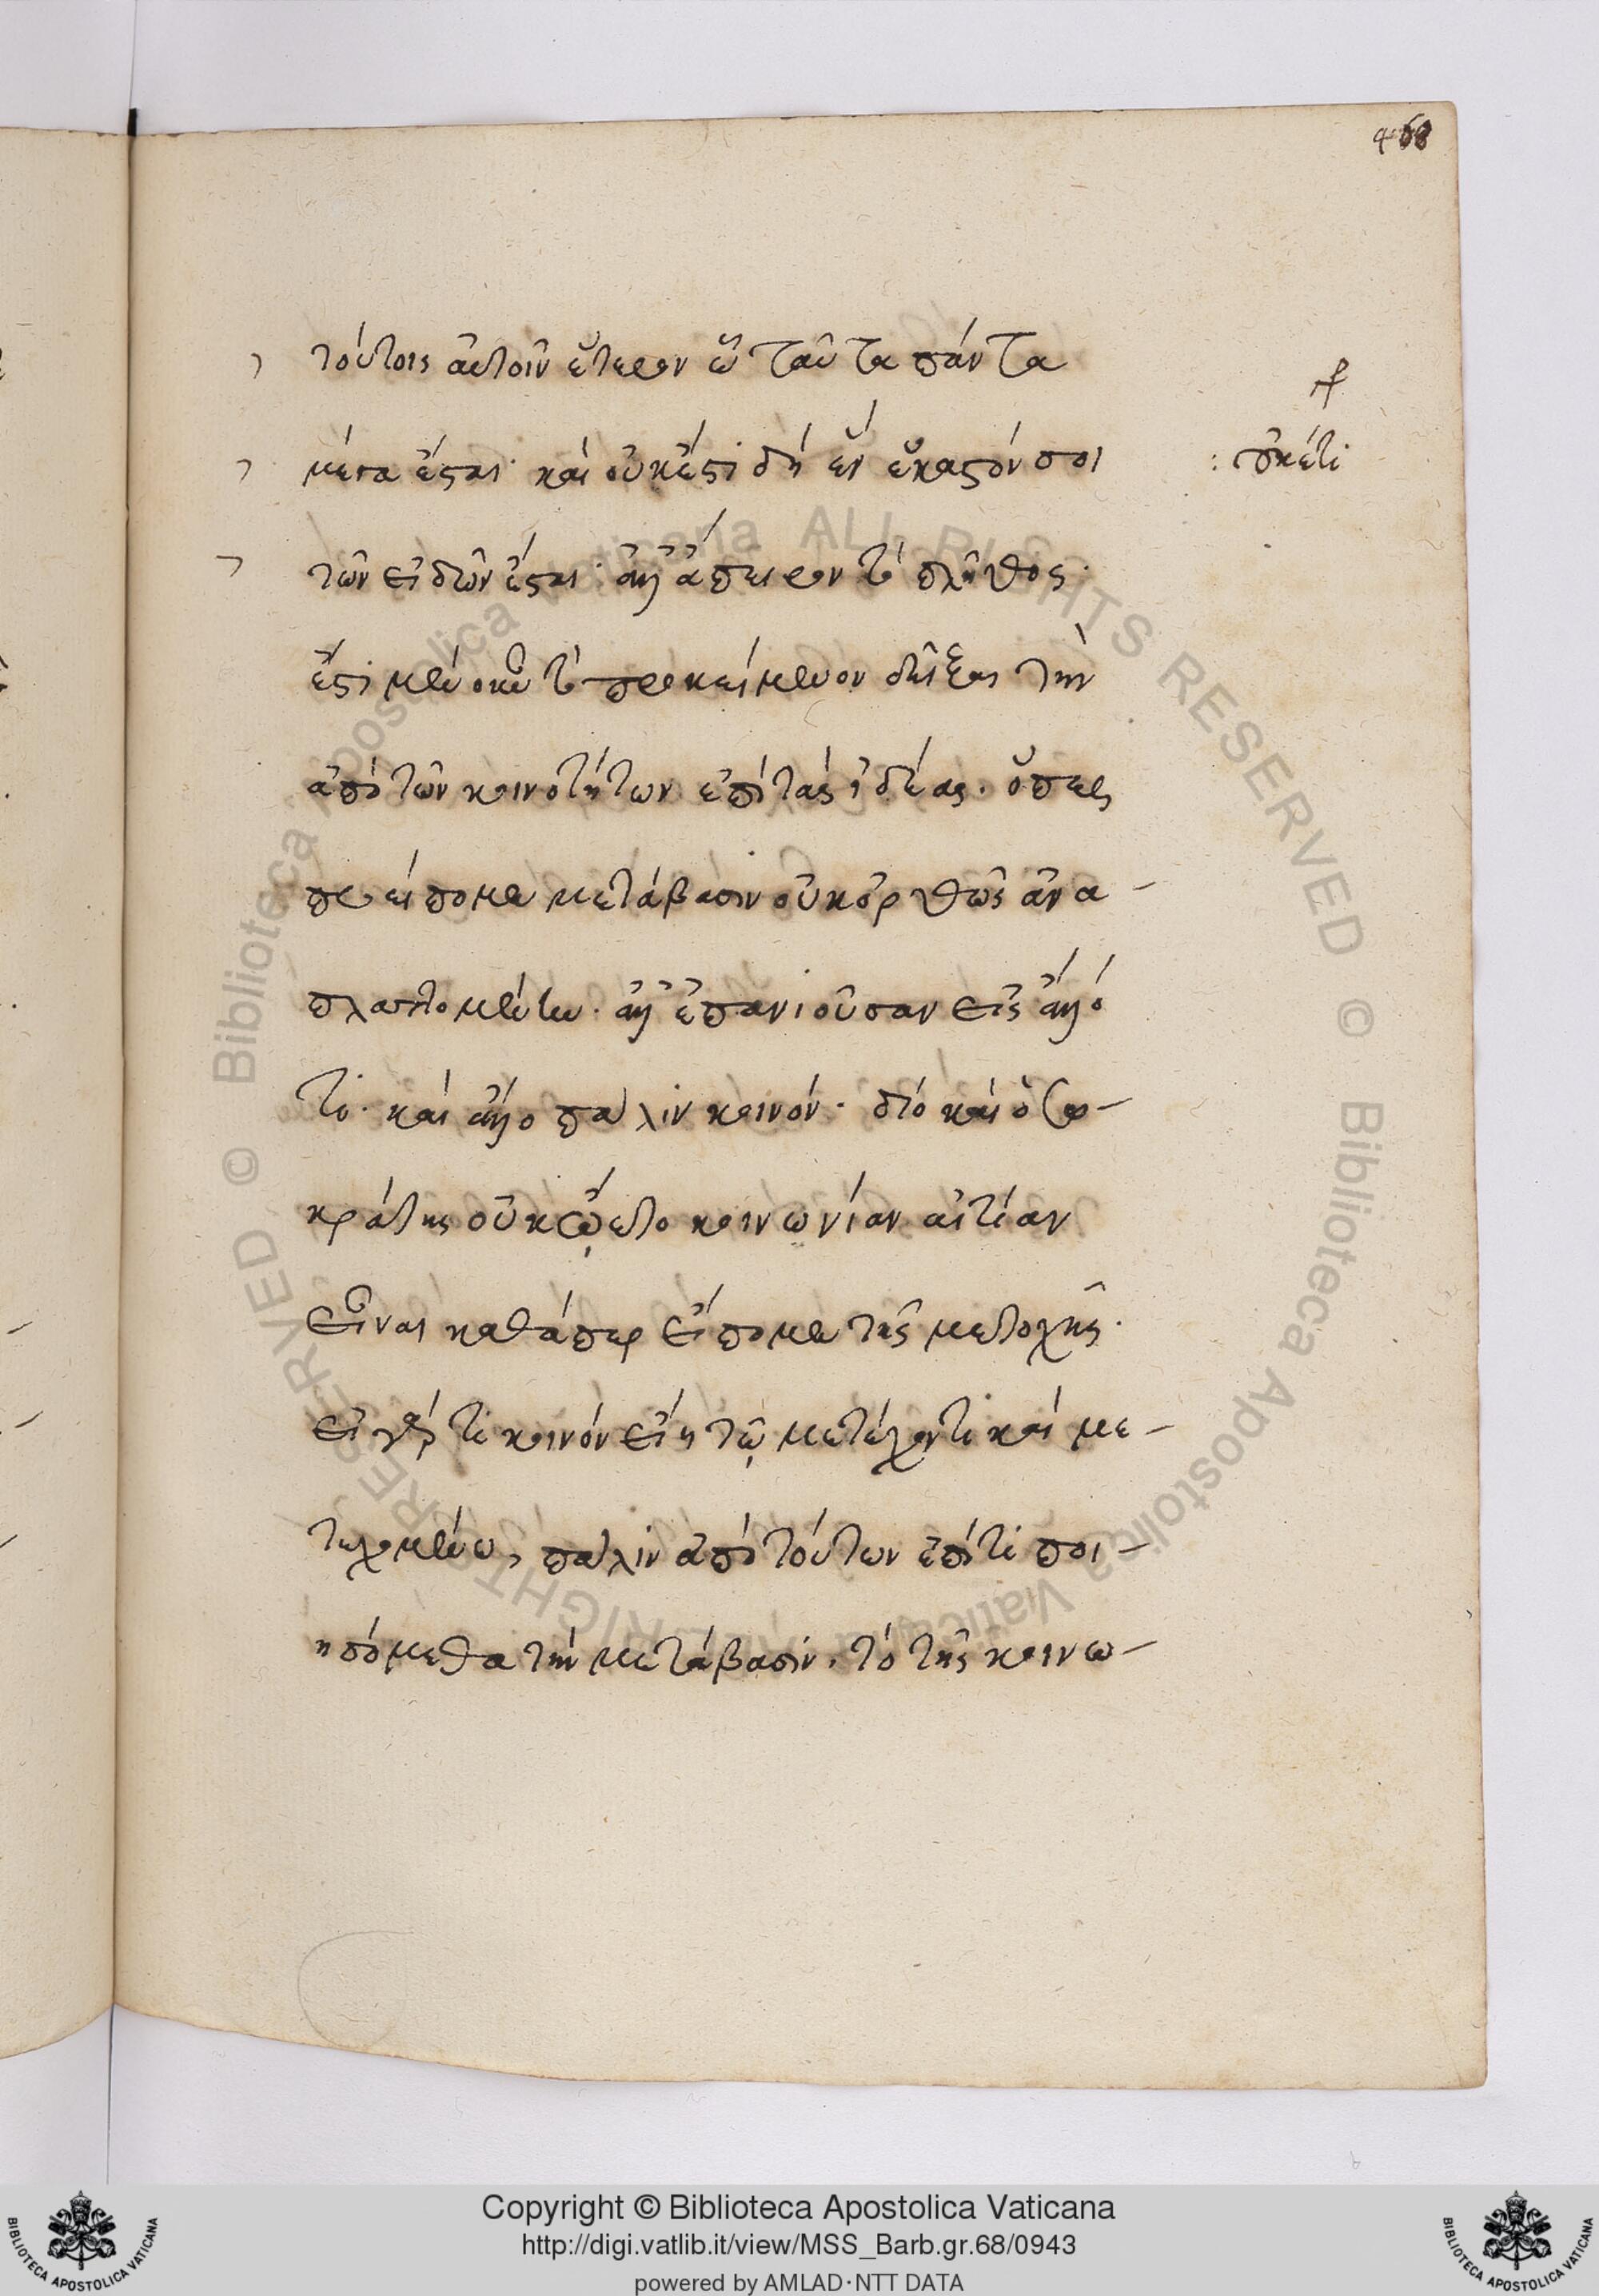 468
τούτοις αὐτοῖν ἕτερον ᾧ ταῦτα πάντα
μέγα ἔσται· καὶ οὐκέτι δὴ ἓν ἕκαστόν σοι
: οὐκέτι
τῶν εἰδῶν ἔσται· ἀλλ' ἄπειρον τὸ πλῆθος·
ἔστι μὲν οὖν τὸ προκείμενον δεῖξαι τὴν
ἀπὸ τῶν κοινοτήτων ἐπὶ τὰς ἰδέας. ὅπερ
προείπομεν μετάβασιν οὐκ ὀρθῶς ἀνα-
πλαττομένην. ἀλλ' ἐπανιοῦσαν εἰς ἄλλό
τι· καὶ ἄλλο πάλιν κοινόν· διὸ καὶ ὁ Σω-
κράτης οὐκ ᾤετο κοινωνίαν αἰτίαν
εἶναι καθάπερ εἴπομεν τῆς μετοχῆς·
εἰ γάρ τι κοινὸν εἴη τῷ μετέχοντι καὶ με-
τεχομένῳ, πάλιν ἀπὸ τούτων ἐπί τι ποι-
ησόμεθα τὴν μετάβασιν, τὸ τῆς κοινω-
Copyright © Biblioteca Apostolica Vaticana
http://digi.vatlib.it/view/MSS_Barb.gr.68/0943
powered by AMLAD·NTT DATA
BIBLIOTECA APOSTOLICA VATICANA
BIBLIOTECA APOSTOLICA VATICANA
© Biblioteca Apostolica Vaticana ALL RIGHTS RESERVED © Biblioteca Apostolica Vaticana ALL RIGHTS RESERVED